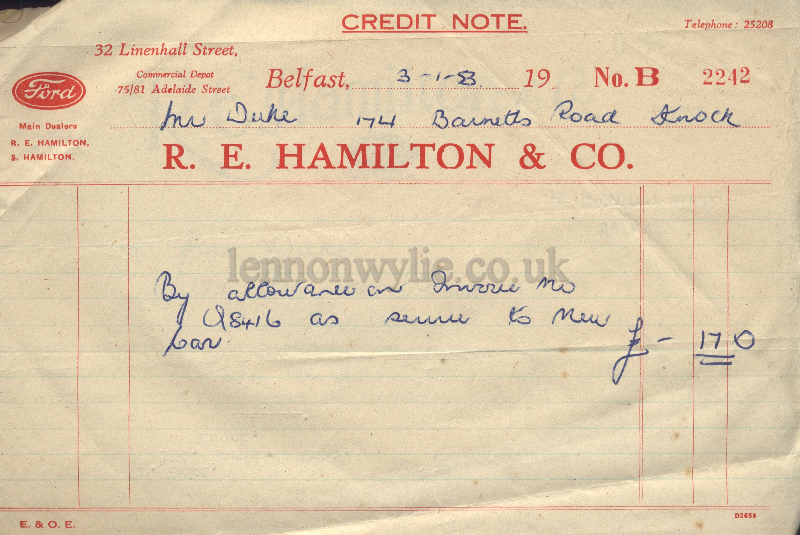 CREDIT NOTE.
Telephone: 25208
32 Linenhall Street,
Commercial Depot
75/81 Adelaide Street
Ford
Belfast, 3-1-53 19 No. B 2242
Main Dealers
R. E. HAMILTON,
S. HAMILTON.
Mr Duke 174 Barnetts Road Knock
R. E. HAMILTON & CO.
lennonwylie.co.uk
By allowance on Invoice No
Q8416 as service to New
Car £ - 17 0
D2659
E. & O. E.